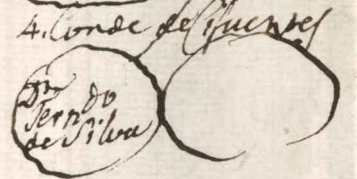 4. Conde de Cifuentes
Dn
Ferndo
de Silva